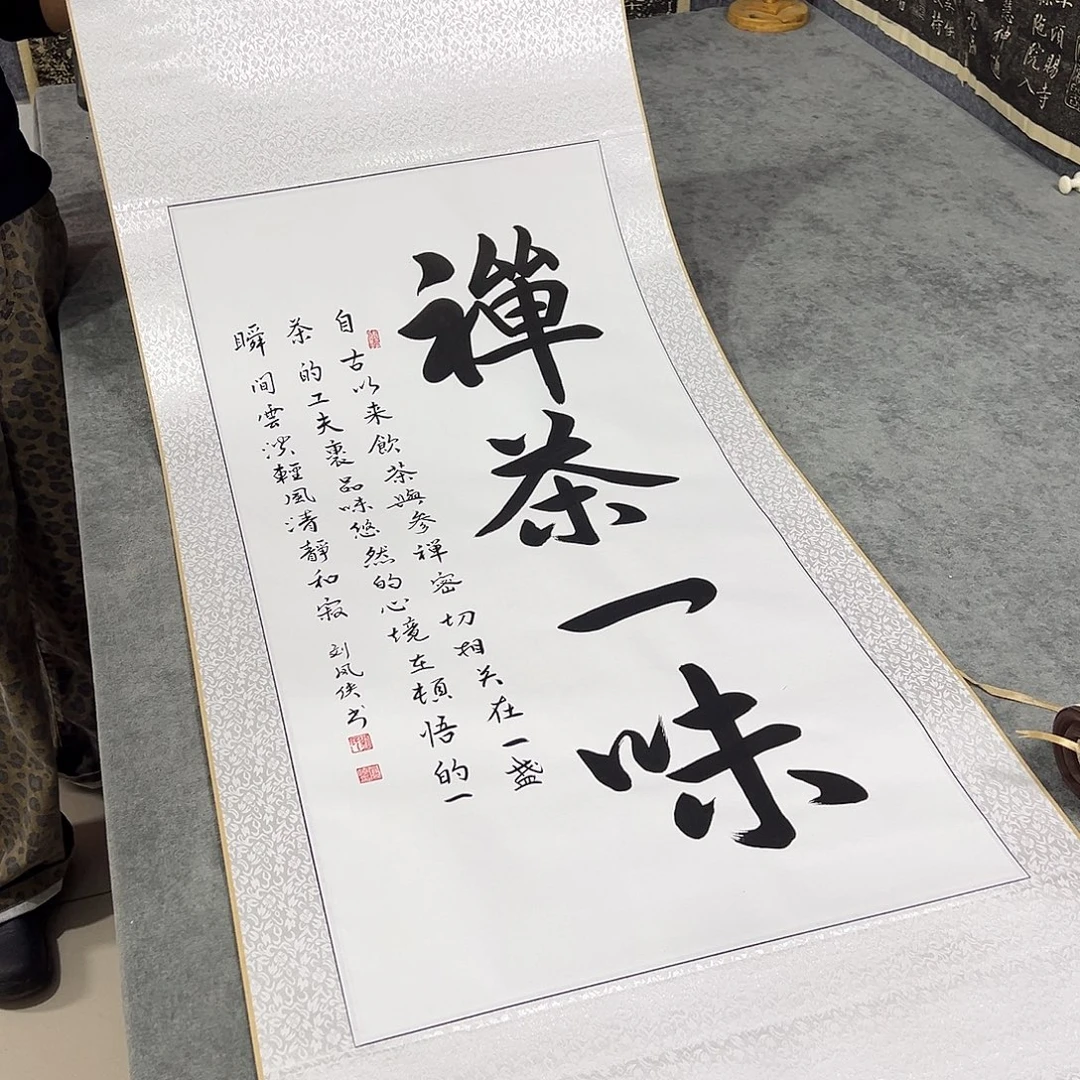 禪茶一味
自古以来飲茶與參禅密切相关在一盏
茶的工夫裏品味悠然的心境在頓悟的一
瞬间雲淡輕风清靜和寂
刘凤侠书